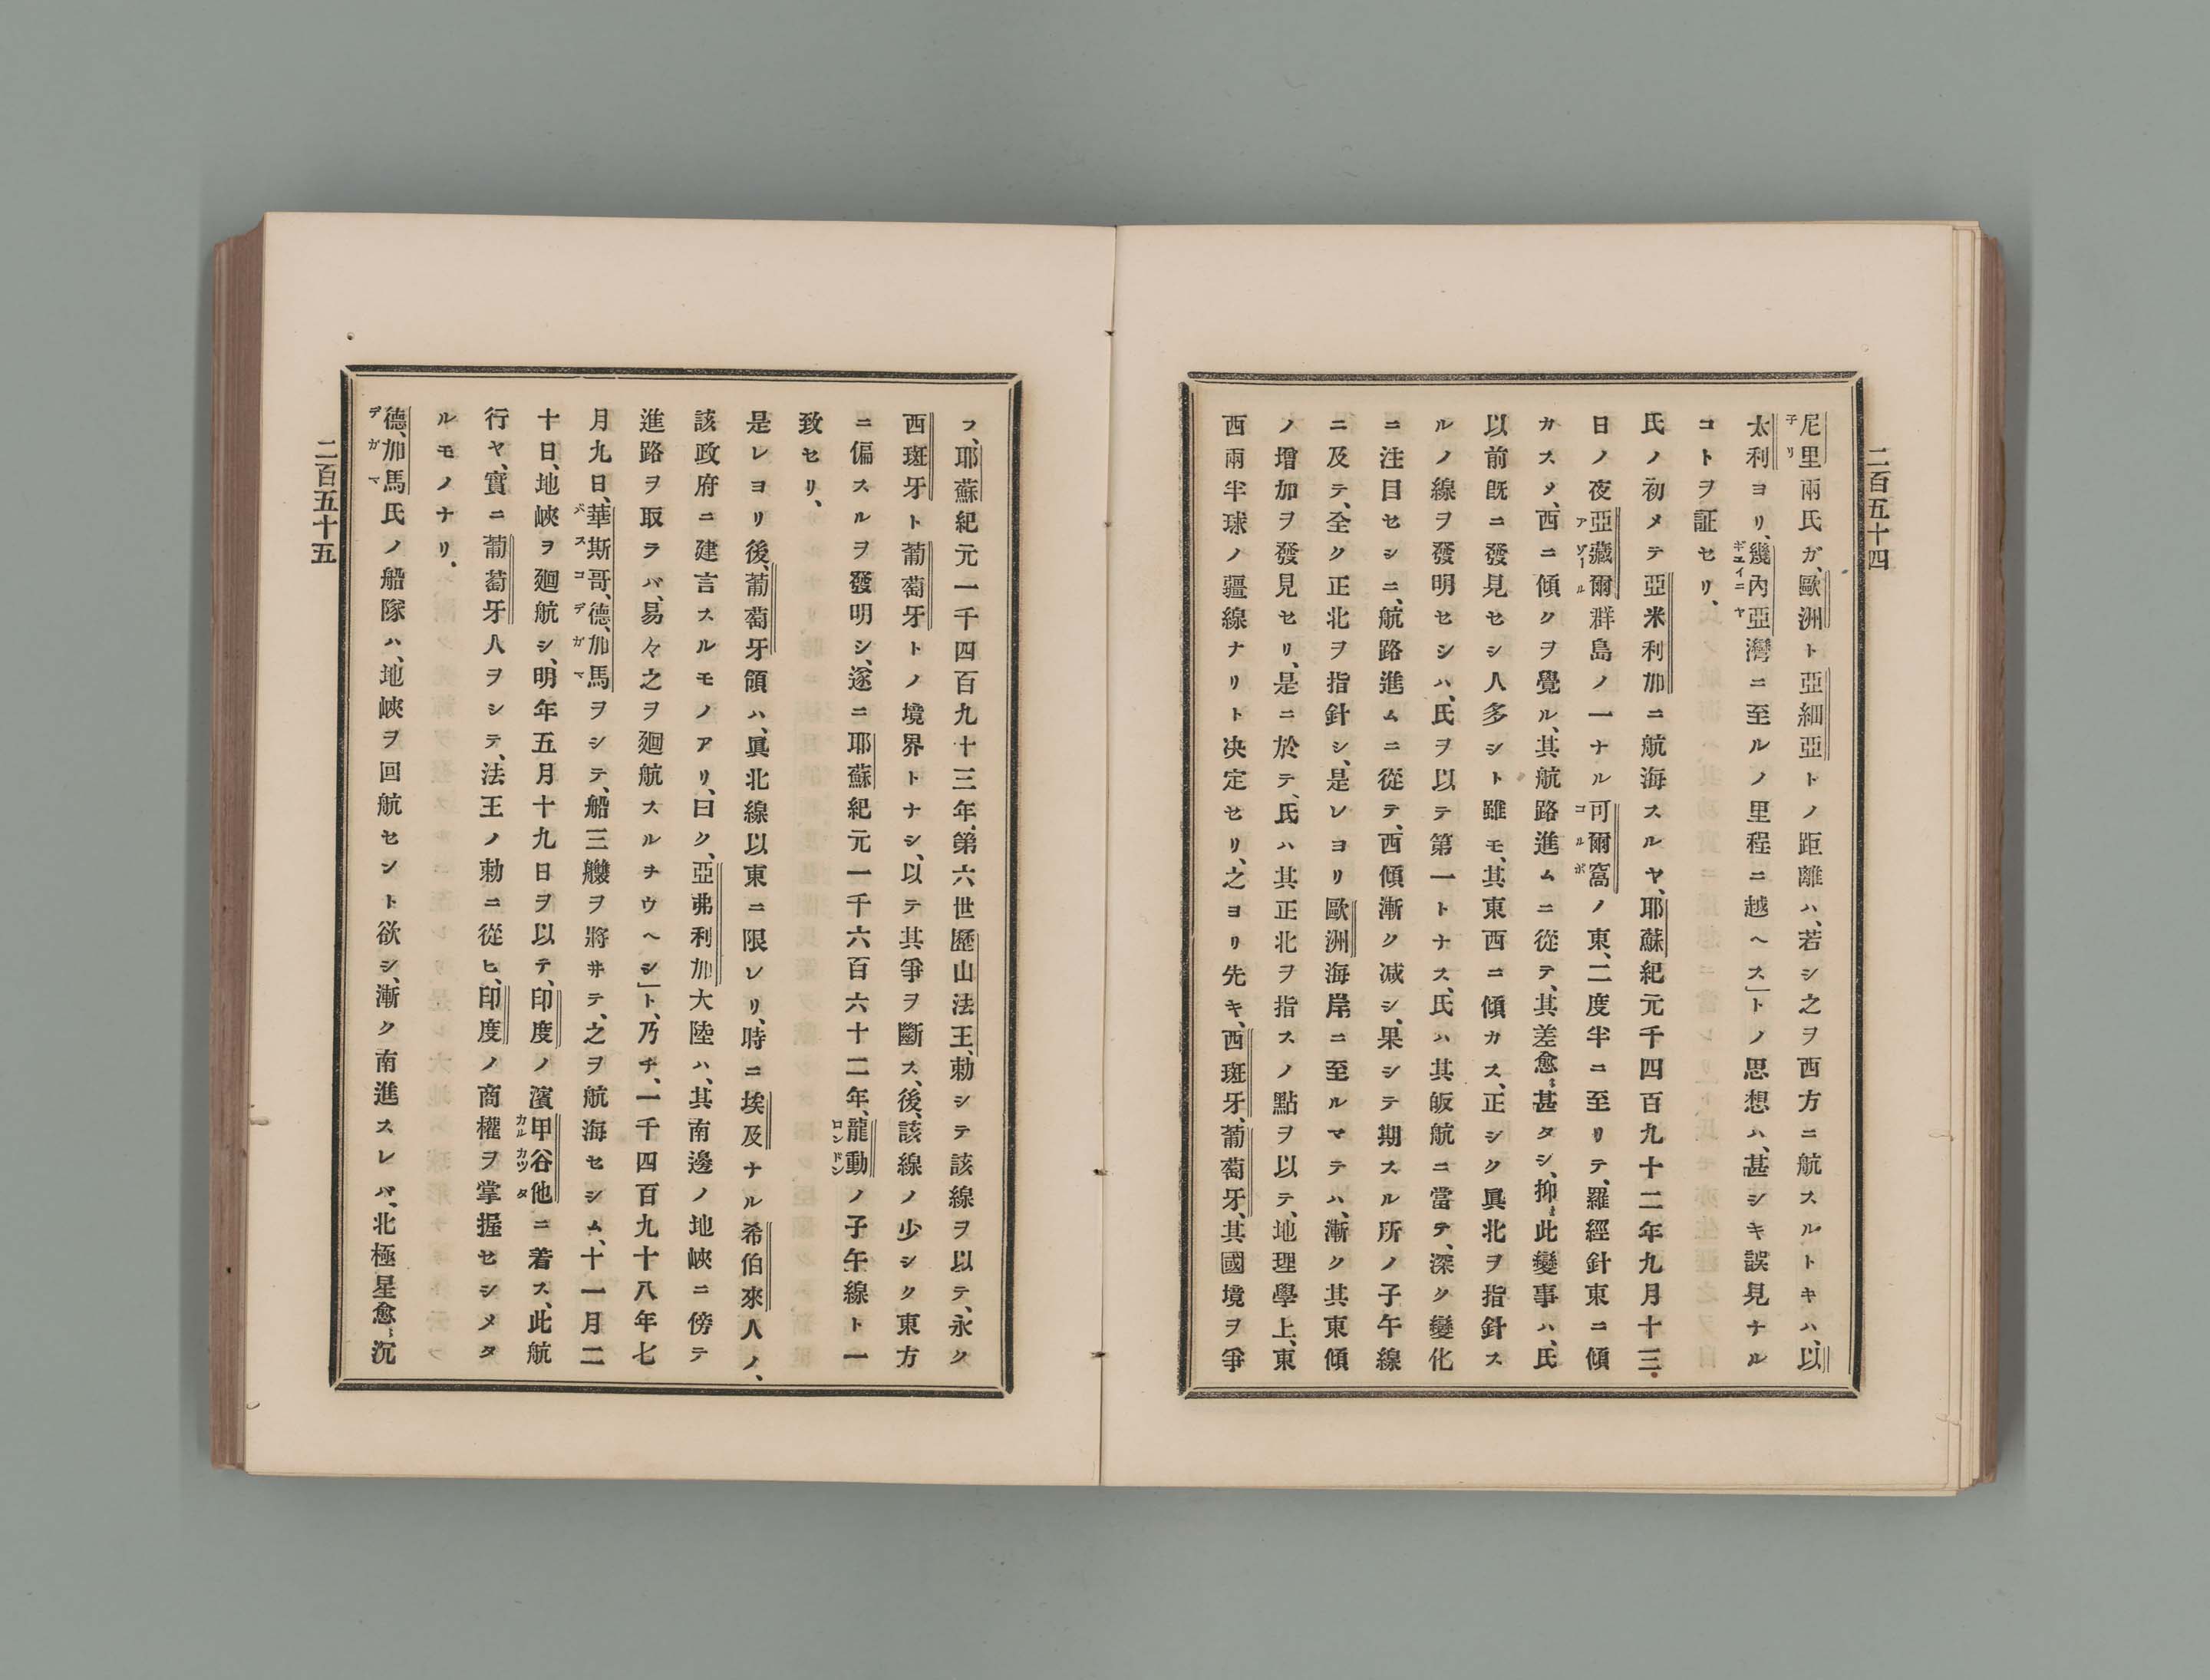 二百五十四
尼里兩氏ガ、歐洲ト亞細亞トノ距離ハ、若シ之ヲ西方ニ航スルトキハ、以
太利ヨリ、幾內亞灣ニ至ルノ里程ニ越ヘス」トノ思想ハ、甚シキ誤見ナル
コトヲ証セリ、
氏ノ初メテ亞米利加ニ航海スルヤ、耶蘇紀元千四百九十二年九月十三
日ノ夜亞藏爾群島ノ一ナル可爾窩ノ東、二度半ニ至リテ、羅經針東ニ傾
カスメ、西ニ傾クヲ覺ル、其航路進ムニ從テ、其差愈〻甚タシ、抑〻此變事ハ、氏
以前既ニ發見セシ人多シト雖モ、其東西ニ傾カス、正シク眞北ヲ指針ス
ルノ線ヲ發明セシハ、氏ヲ以テ第一トナス、氏ハ其皈航ニ當テ、深ク變化
ニ注目セシニ、航路進ムニ從テ、西傾漸ク减シ、果シテ期スル所ノ子午線
ニ及テ、全ク正北ヲ指針シ、是レヨリ歐洲海岸ニ至ルマテハ、漸ク其東傾
ノ增加ヲ發見セリ、是ニ於テ、氏ハ其正北ヲ指スノ點ヲ以テ、地理學上、東
西兩半球ノ疆線ナリト决定セリ、之ヨリ先キ、西班牙、葡萄牙、其國境ヲ爭
フ、耶蘇紀元一千四百九十三年、第六世歷山法王、勅シテ該線ヲ以テ、永ク
西班牙ト葡萄牙トノ境界トナシ、以テ其爭ヲ斷ス、後、該線ノ少シク東方
ニ偏スルヲ發明シ、遂ニ耶蘇紀元一千六百六十二年、龍動ノ子午線ト一
致セリ、
是レヨリ後、葡萄牙領ハ、眞北線以東ニ限レリ、時ニ埃及ナル希伯來人ノ、
該政府ニ建言スルモノアリ、曰ク、亞弗利加大陸ハ、其南邊ノ地峽ニ傍テ
進路ヲ取ラバ、易々之ヲ廻航スルヲウヘシ」ト、乃チ、一千四百九十八年七
月九日、華斯哥、德、加馬ヲシテ、船三艘ヲ將井テ、之ヲ航海セシム、十一月二
十日、地峽ヲ廻航シ、明年五月十九日ヲ以テ、印度ノ濱甲谷他ニ着ス、此航
行ヤ、實ニ葡萄牙人ヲシテ、法王ノ勅ニ從ヒ、印度ノ商權ヲ掌握セシメタ
ルモノナリ、
德、加馬氏ノ船隊ハ、地峽ヲ回航セシト欲シ、漸ク南進スレバ、北極星愈〻沉
二百五十五